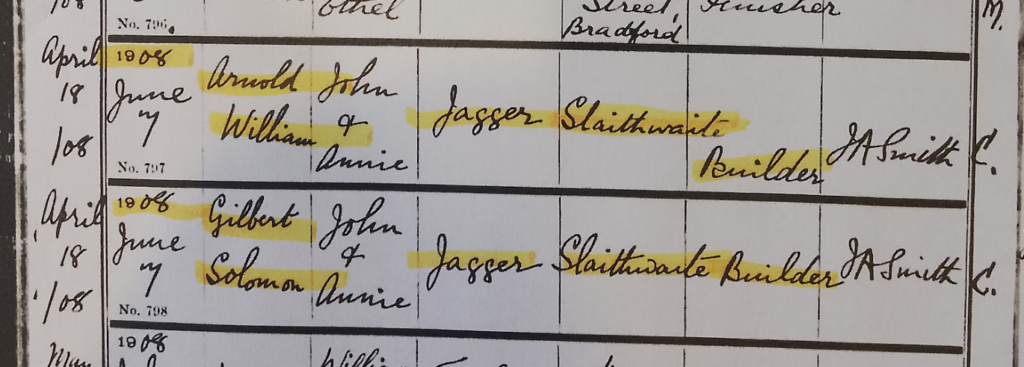 /08 Ethel Street, Finisher M.
No. 796. Bradford
April 1908 Arnold John
18 June William & Jagger Slaithwaite
/08 7 Annie Builder JA Smith C.
No. 797
April 1908 Gilbert John
18 June Solomon & Jagger Slaithwaite Builder JA Smith C.
/08 7 Annie
No. 798
May 1908